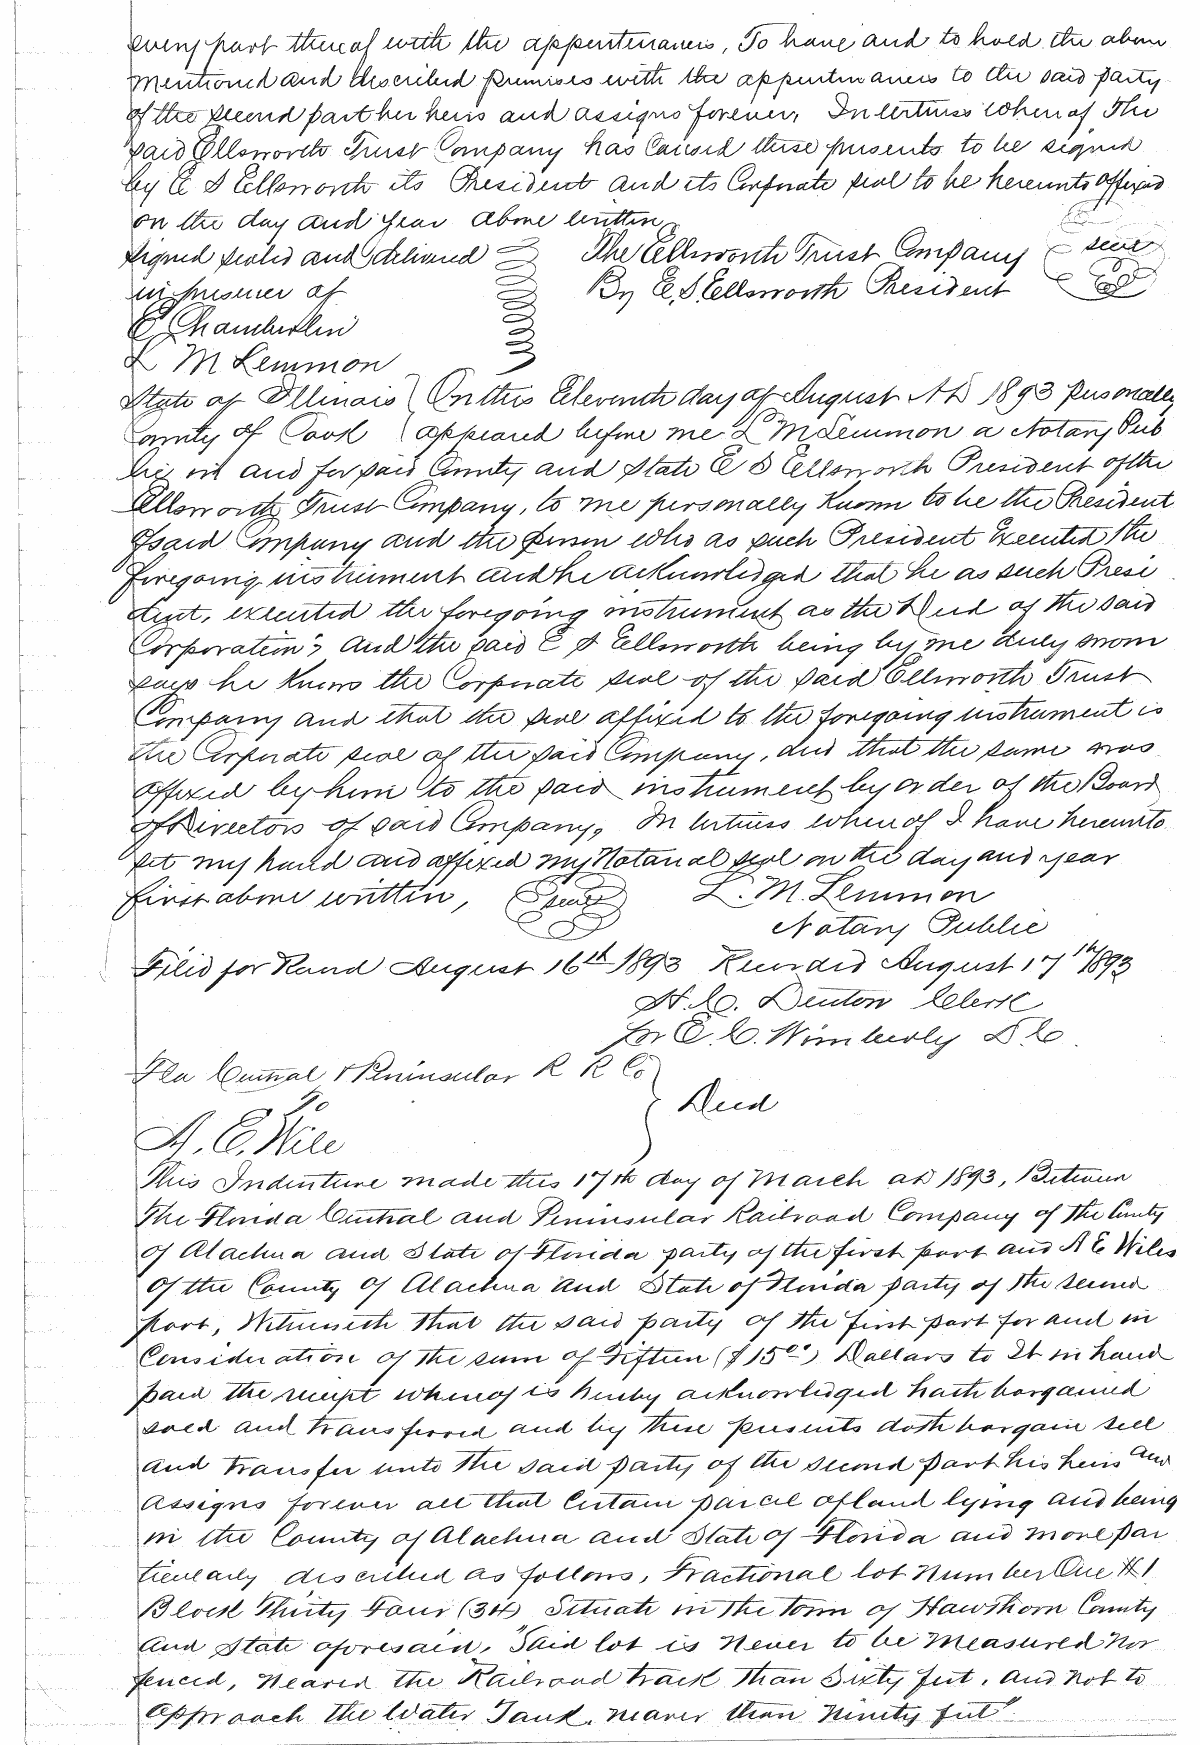 every part thereof with the appurtenances, To have and to hold the above
mentioned and described premises with the appurtenances to the said party
of the second part her heirs and assigns forever, In Witness Whereof The
said Ellsworth Trust Company has caused these presents to be signed
by E S Ellsworth its President and its Corporate seal to be hereunto affixed
on the day and year above written,
signed sealed and delivered The Ellsworth Trust Company seal
in presence of By E, S, Ellsworth President
E Chamberlin
L M Lemmon
State of Illinois On this Eleventh day of August AD 1893 personally
County of Cook appeared before me L M Lemmon a Notary Pub
lic in and for said County and State E S Ellsworth President of the
Ellsworth Trust Company, to me personally known to be the President
of said Company and the person who as such President Executed the
foregoing instrument and he acknowledged that he as such Presi
dent, executed the foregoing instrument as the Deed of the said
Corporation; And the said E S Ellsworth being by me duly sworn
says he knows the Corporate seal of the said Ellsworth Trust
Company and that the seal affixed to the foregoing instrument is
the Corporate seal of the said Company, and that the same was
affixed by him to the said instrument by order of the Board
of Directors of said Company, In Witness whereof I have hereunto
set my hand and affixed my Notarial seal on the day and year
first above written, seal L. M. Lemmon
Notary Public
Filed for Record August 16th 1893 Recorded August 17th 1893
H. C. Denton Clerk
for E. C. Wimberly D C
Fla Central & Peninsular R R Co
To Deed
A. E. Wile
This Indenture made this 17th day of March AD 1893, Between
The Florida Central and Peninsular Railroad Company of the County
of Alachua and State of Florida party of the first part and A E Wiles
of the County of Alachua and State of Florida party of the second
part, Witnesseth that the said party of the first part for and in
Consideration of the sum of Fifteen ($15 00) Dollars to It in hand
paid the receipt whereof is hereby acknowledged hath bargained
sold and transferred and by these presents doth bargain sell
and transfer unto the said party of the second part his heirs and
assigns forever all that certain parcel of land lying and being
in the County of Alachua and State of Florida and more par
ticularly described as follows, Fractional lot Number One #1
Block Thirty Four (34) Situate in the town of Hawthorn County
and State aforesaid. "Said lot is never to be measured nor
fenced, nearer the Railroad track than Sixty feet, and not to
approach the Water Tank, nearer than Ninety feet"